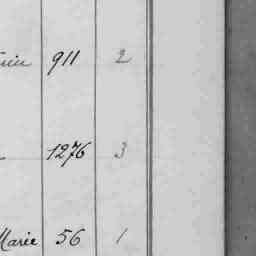 911 2
1276 3
Marie 56 1